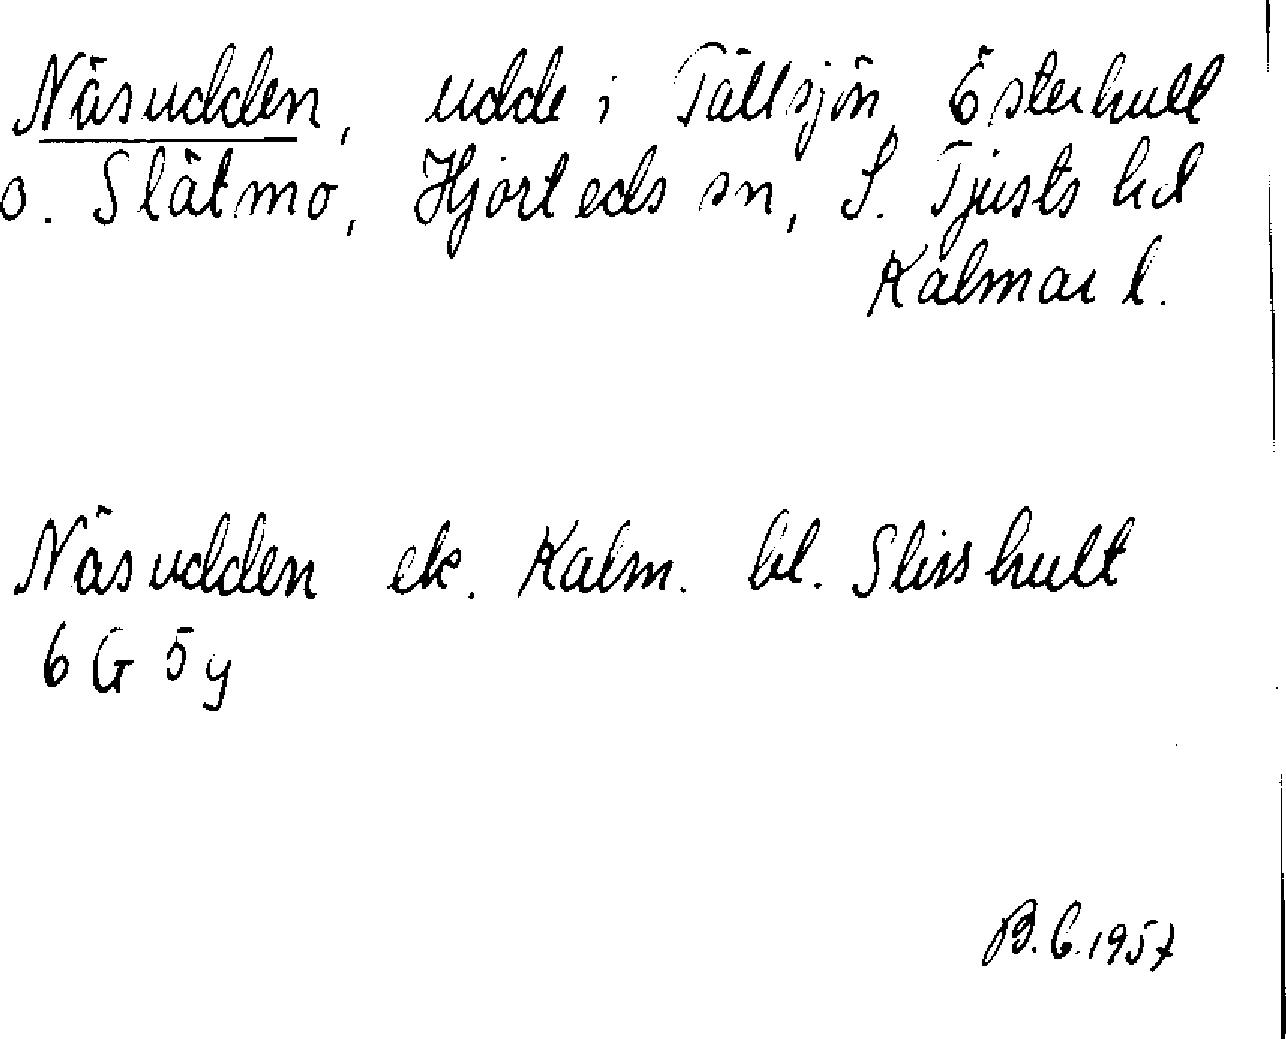 Näsudden, udde i Tällsjön, Österhult
o. Slätmo, Hjorteds sn, S. Tjusts hd
Kalmar l.
Näsudden ek. Kalm. bl. Slisshult
6 G 5y
B.G.1957